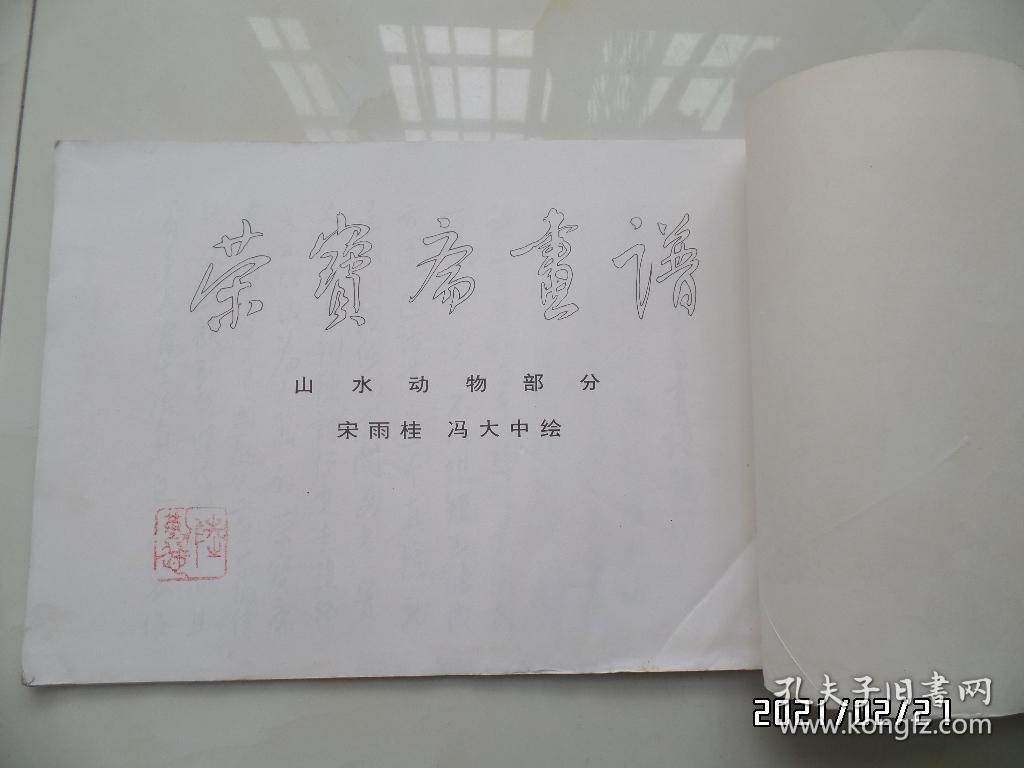 荣寶斋畫谱
山水动物部分
宋雨桂 冯大中绘
孔夫子旧書网
2021/02/21
www.kongfz.com